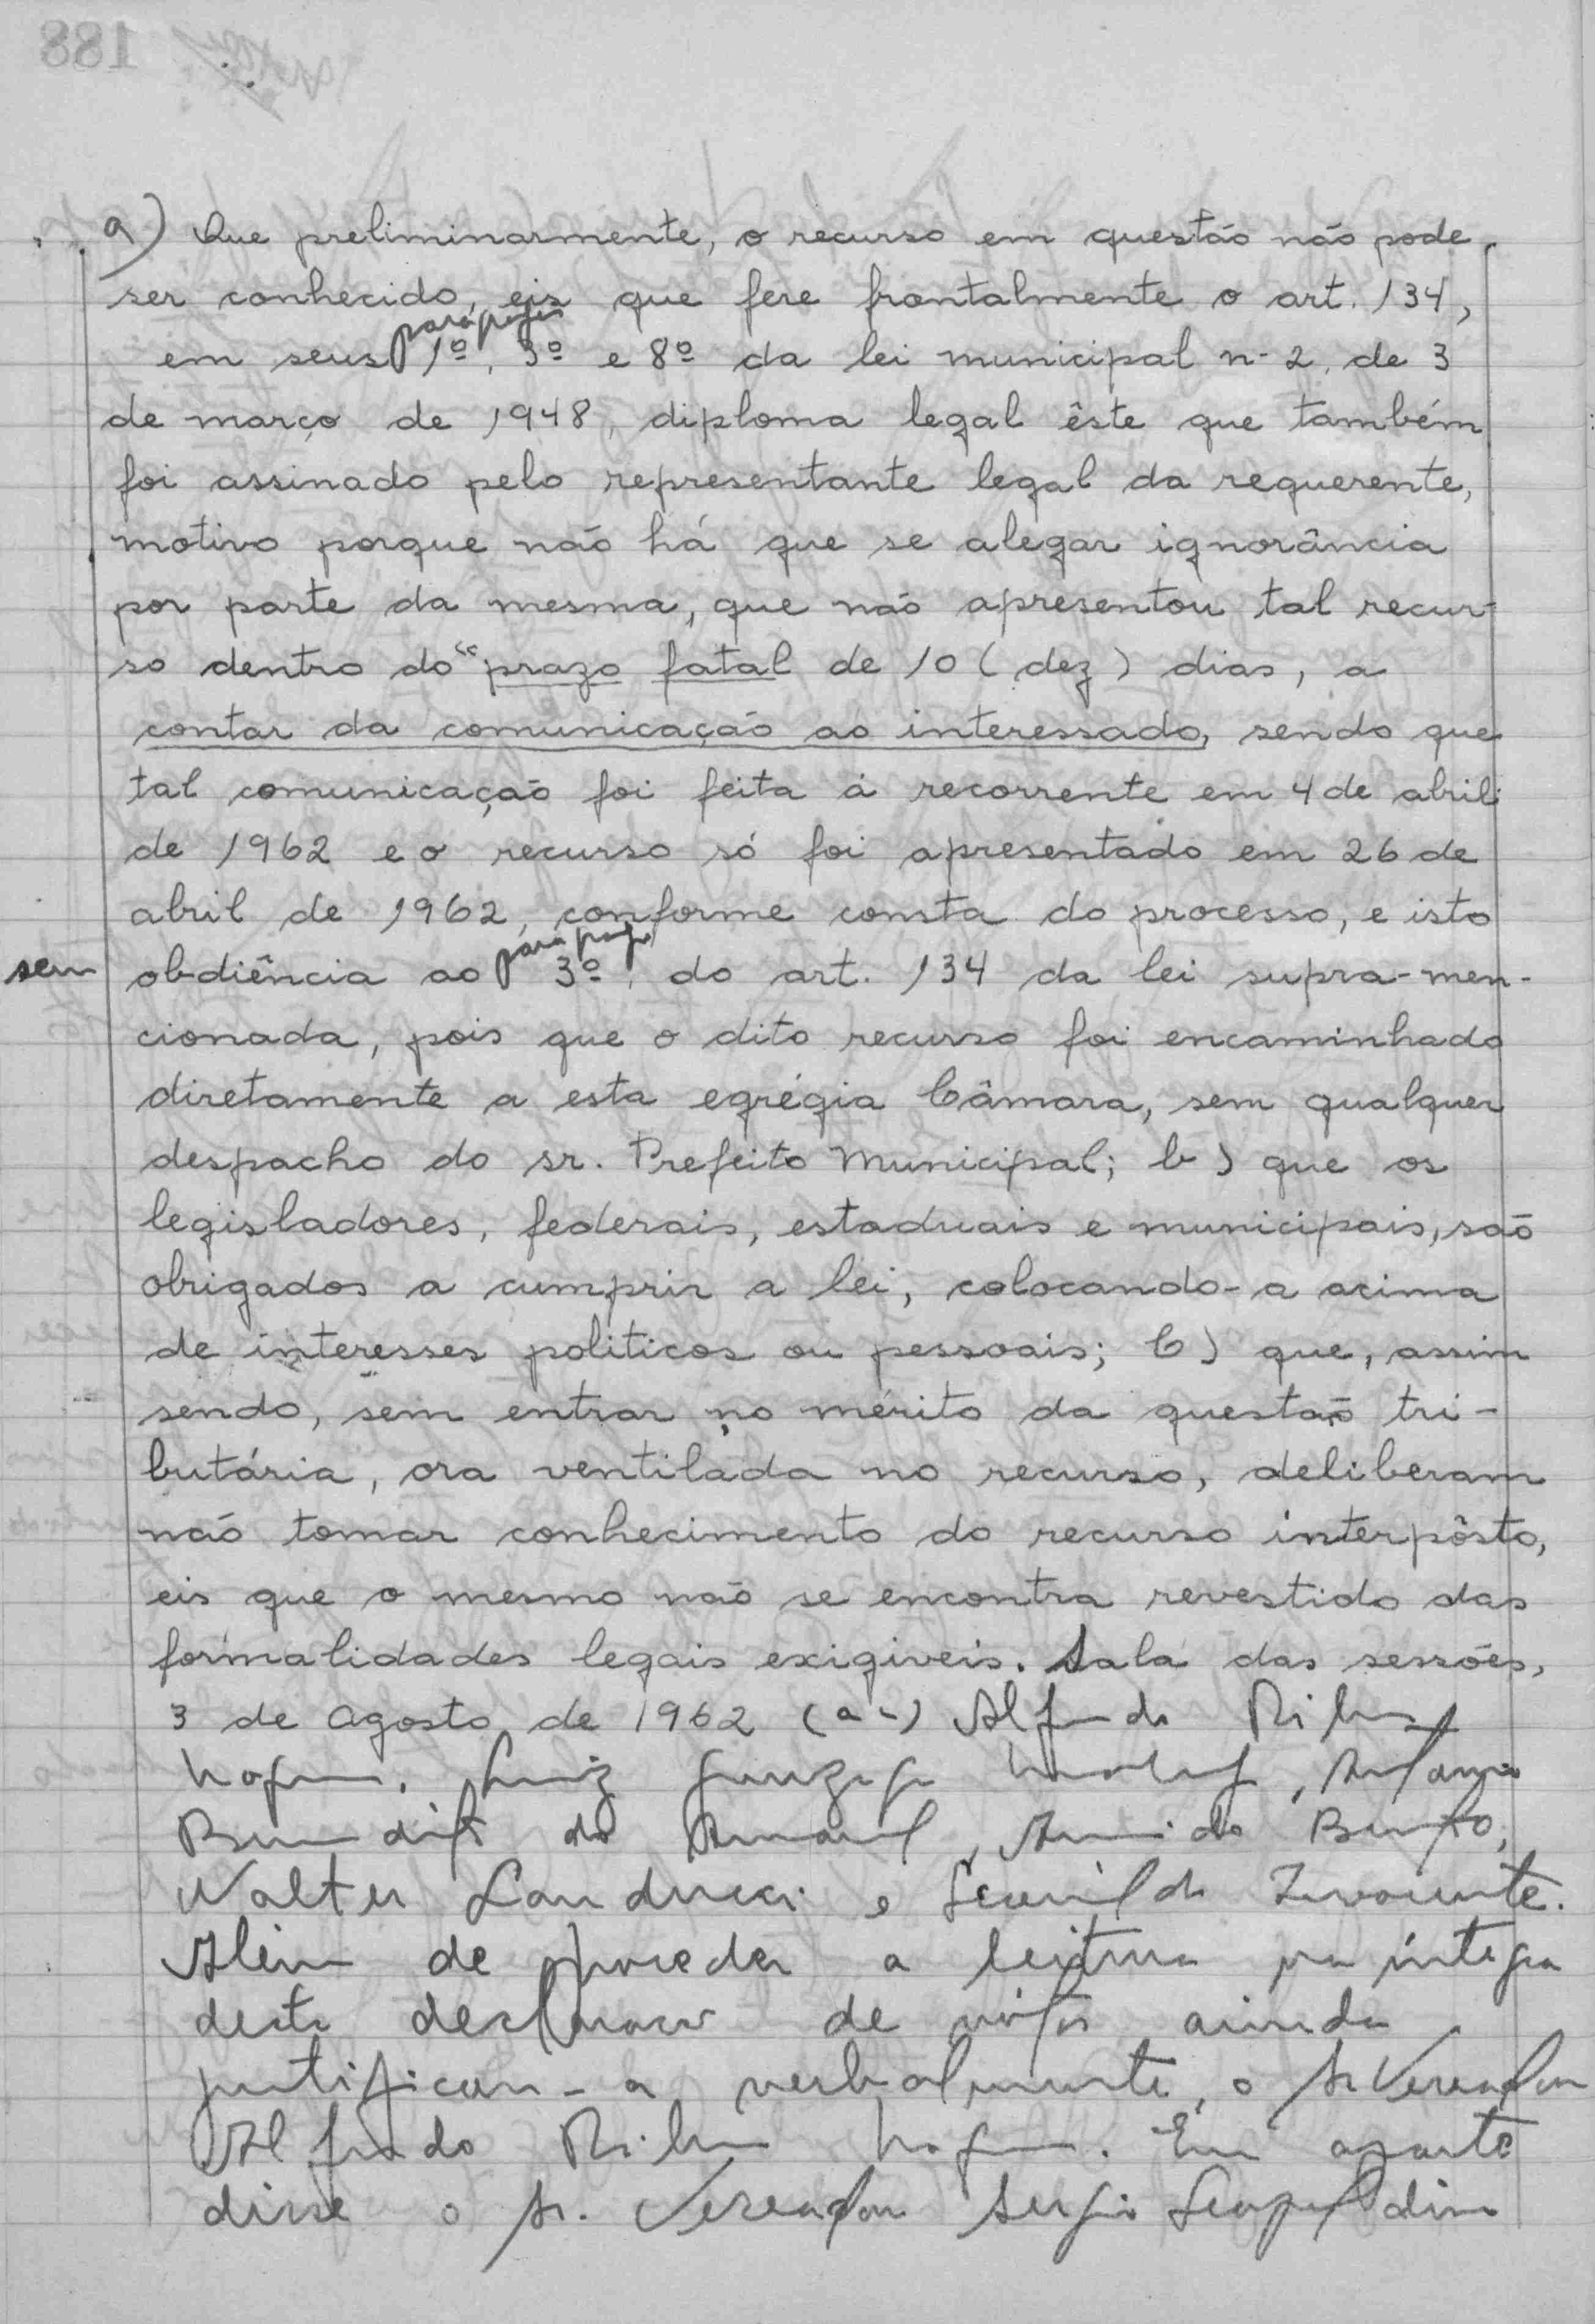 188
a) Que preliminarmente, o recurso em questão não pode
ser conhecido, eis que fere frontalmente o art. 134,
em seus parágrafos 1º, 3º e 8º da lei municipal n- 2, de 3
de março de 1948, diploma legal êste que também
foi assinado pelo representante legal da requerente,
motivo porque não há que se alegar ignorância
por parte da mesma, que não apresentou tal recur-
so dentro do "prazo fatal de 10 (dez) dias, a
contar da comunicação ao interessado, sendo que
tal comunicação foi feita à recorrente em 4 de abril
de 1962 e o recurso só foi apresentado em 26 de
abril de 1962, conforme consta do processo, e isto
sem obdiência ao parágrafo 3º, do art. 134 da lei supra-men-
cionada, pois que o dito recurso foi encaminhado
diretamente a esta egrégia Câmara, sem qualquer
despacho do sr. Prefeito Municipal; b) que os
legisladores, federais, estaduais e municipais, são
obrigados a cumprir a lei, colocando-a acima
de interesses politicos ou pessoais; C) que, assim
sendo, sem entrar no mérito da questão tri-
butária, ora ventilada no recurso, deliberam
não tomar conhecimento do recurso interpôsto,
eis que o mesmo não se encontra revestido das
formalidades legais exigiveis. Sala das sessões,
3 de Agosto de 1962 (a-) Alfredo
Luiz Gonzaga
do Amaral,
Walter Landucci e
Além de proceder a leitura na íntegra
desta declaração de votos ainda
justificou-a verbalmente, o Sr Vereador
Alfredo . Em aparte
disse o Sr. Vereador Sergio Leopoldino